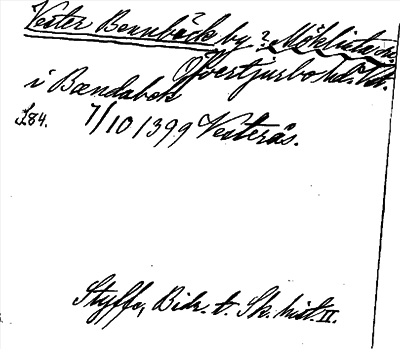 Vester Bennbäck by? Möklinta sn.
Öfvertjurbo hd. Vd.
i Bændabek
s. 84. 7/10 1399 Vesterås.
Styffe, Bidr. t. Sk. hist. II.